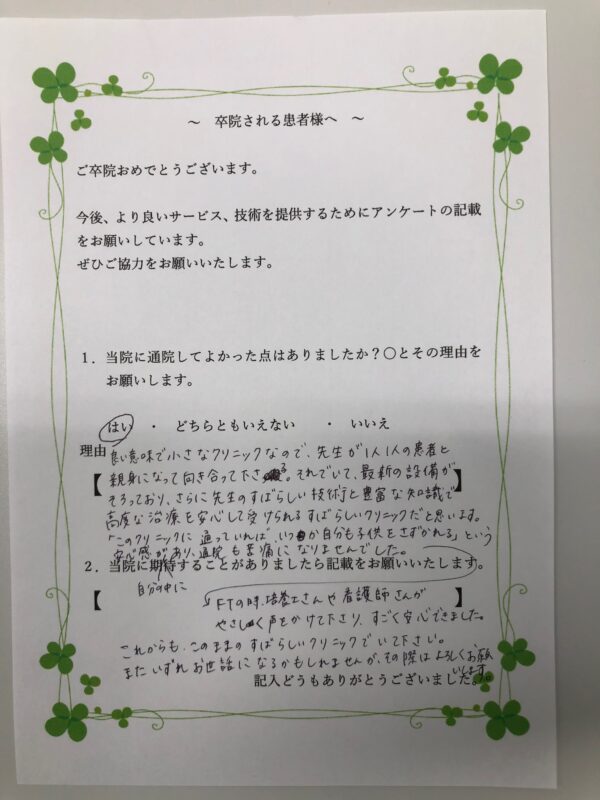 ～ 卒院される患者様へ ～
ご卒院おめでとうございます。
今後、より良いサービス、技術を提供するためにアンケートの記載
をお願いしています。
ぜひご協力をお願いいたします。
1．当院に通院してよかった点はありましたか？〇とその理由を
お願いします。
はい ・ どちらともいえない ・ いいえ
理由 良い意味で小さなクリニックなので、先生が1人1人の患者と
【 親身になって向き合って下さる。それでいて、最新の設備が 】
そろっており、さらに先生のすばらしい技術と豊富な知識で
高度な治療を安心して受けられるすばらしいクリニックだと思います。
「このクリニックに通っていれば、いつか自分も子供をさずかれる」という
安心感があり、通院も苦痛になりませんでした。
2．当院に期待することがありましたら記載をお願いいたします。
自分の中に
【 FTの時、培養士さんや看護師さんが 】
やさしく声をかけて下さり、すごく安心できました。
これからも、このままのすばらしいクリニックでいて下さい。
またいずれお世話になるかもしれませんが、その際はよろしくお願
いします。
記入どうもありがとうございました。